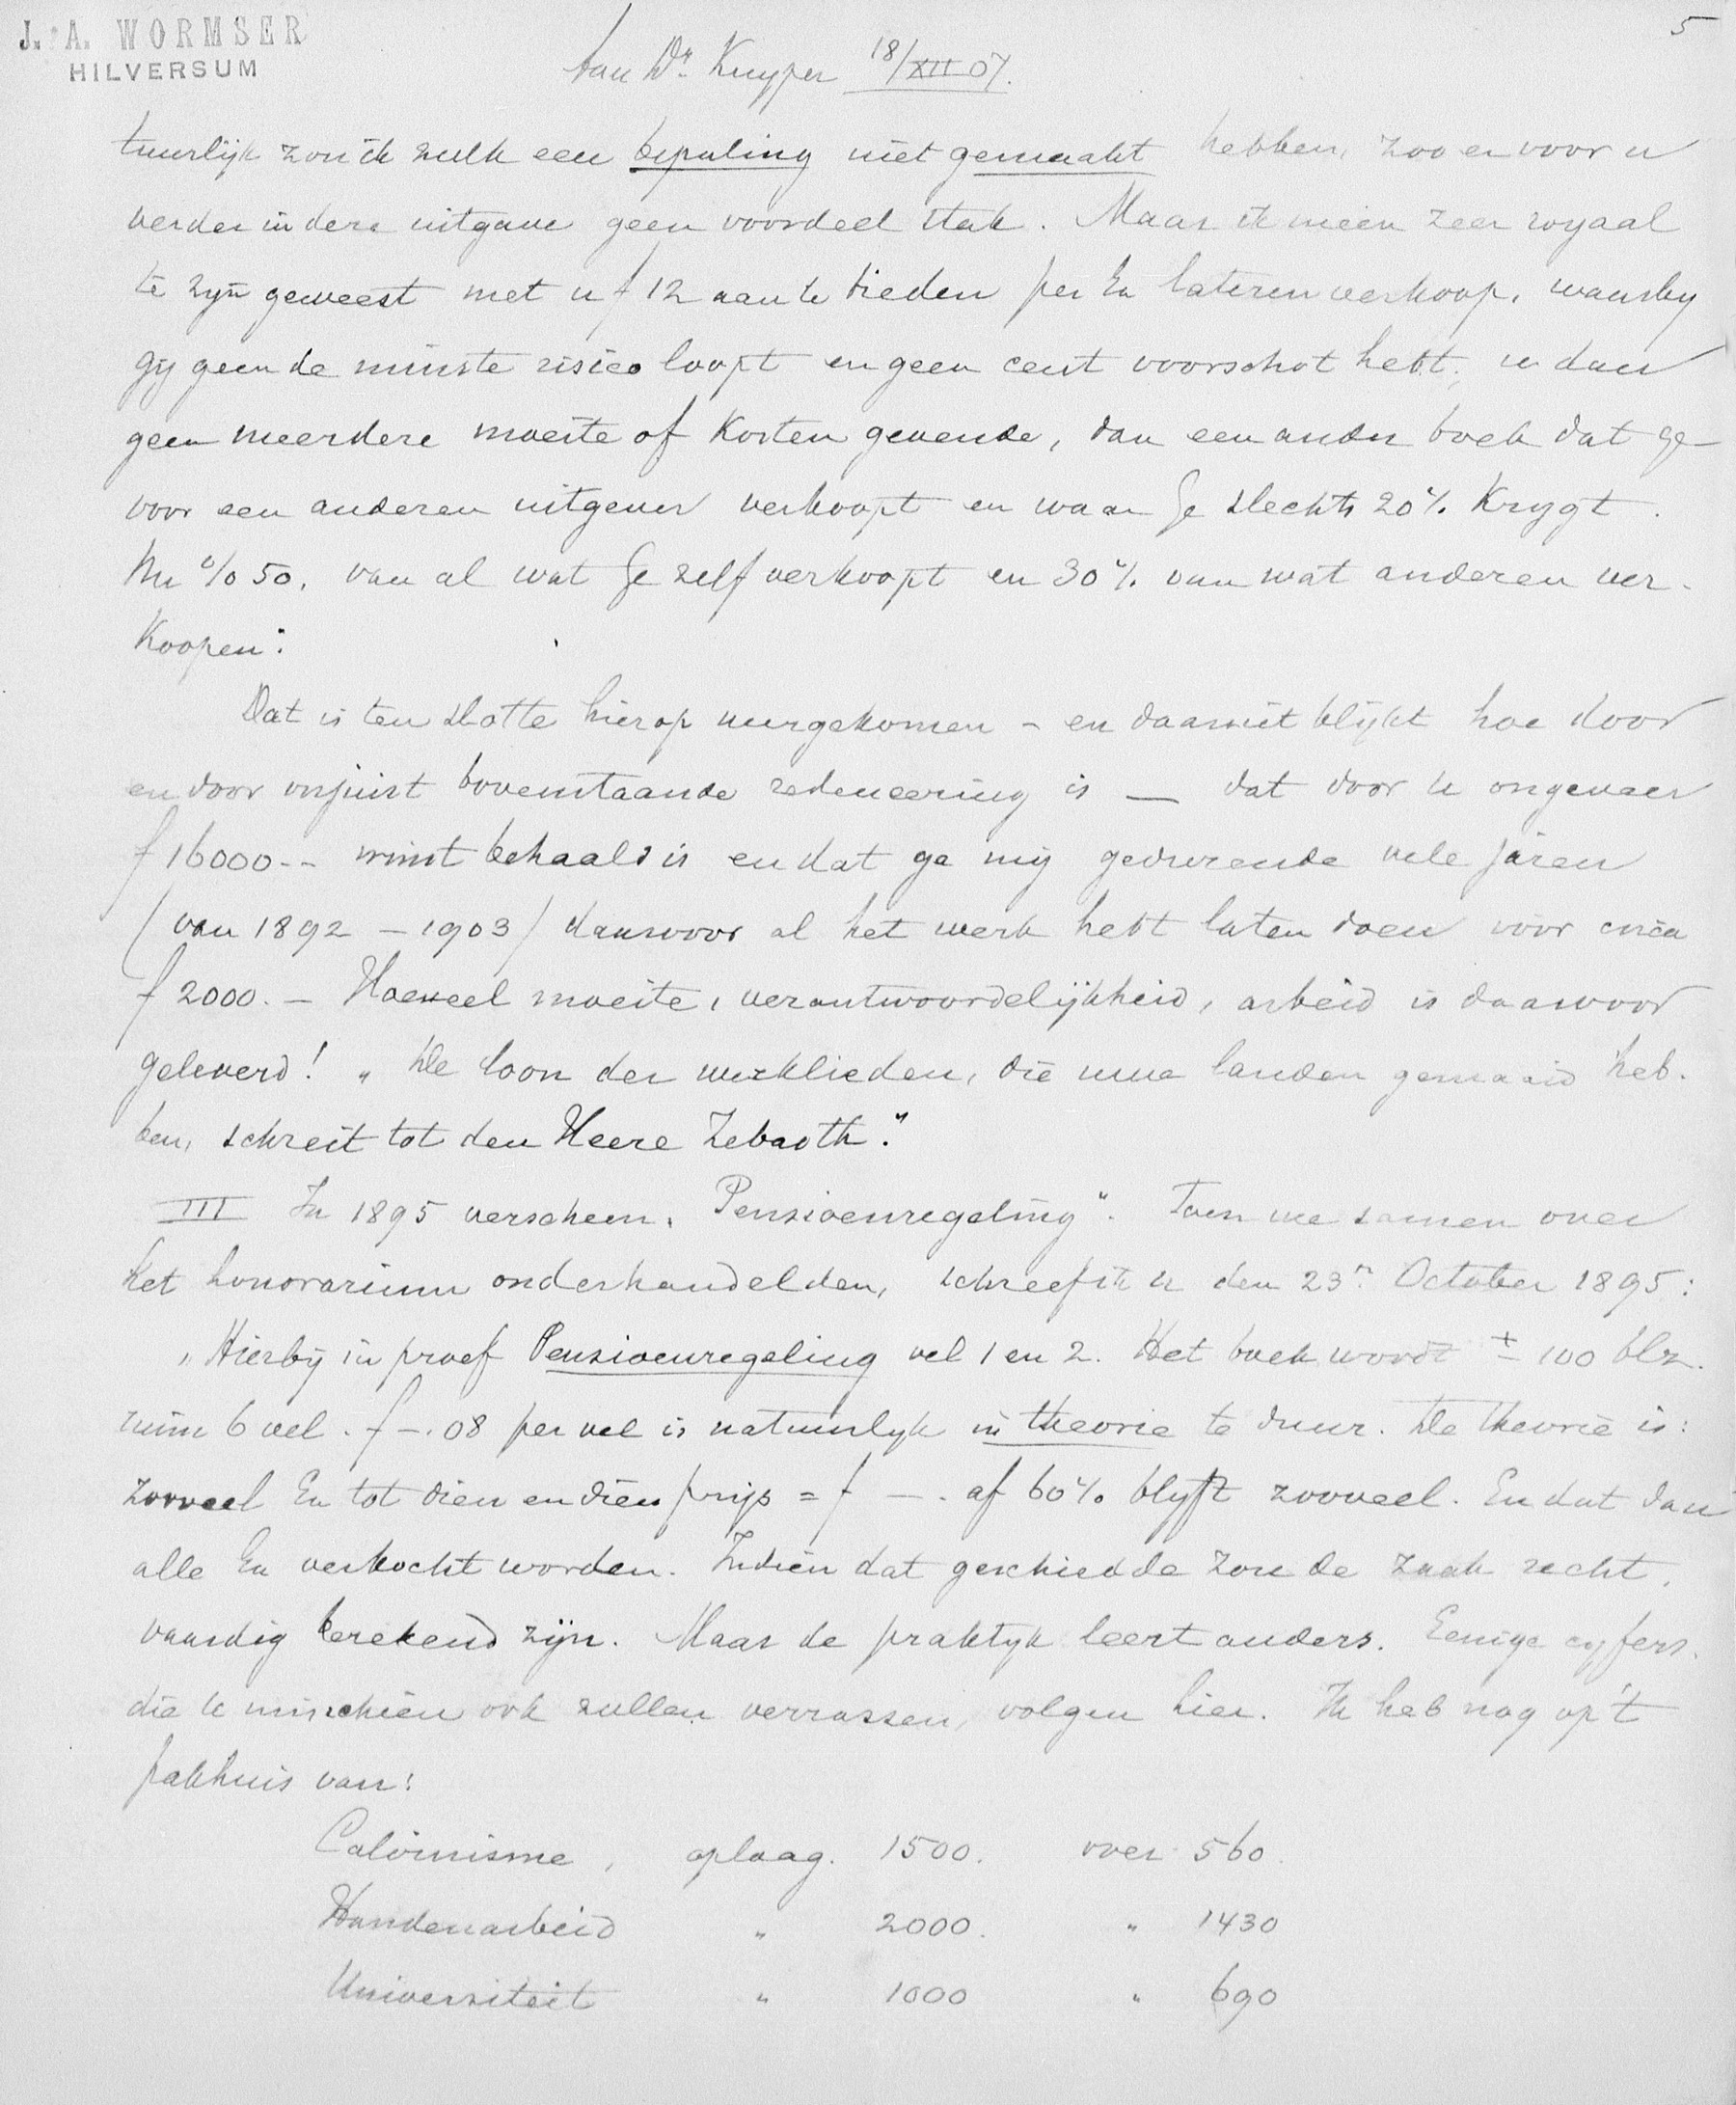 J. A. WORMSER
HILVERSUM
5
Aan Dr. Kuyper 18/XII 07.
tuurlijk zou ik zulk een bepaling niet gemaakt hebben, zoo er voor u
verder in deze uitgave geen voordeel stak. Maar ik meen zeer royaal
te zijn geweest met u f 12 aan te bieden per Ex lateren verkoop, waarby
gij geen de minste risico loopt en geen cent voorschot hebt; u dan
geen meerdere moeite of kosten gevende, dan een ander boek dat ge
voor een anderen uitgever verkoopt en waar Ge slechts 20% krygt.
Nu % 50. van al wat Ge zelf verkoopt en 30% van wat anderen ver-
koopen:
Dat is ten slotte hierop neergekomen - en daaruit blijkt hoe door
en door onjuist bovenstaande redeneering is — dat door U ongeveer
f 16000.- winst behaald is en dat ge mij gedurende vele jaren
(van 1892 - 1903) daarvoor al het werk hebt laten doen voor circa
f 2000.- Hoeveel moeite, verantwoordelijkheid, arbeid is daarvoor
geleverd! „De loon der werklieden, die uwe landen gemaaid heb-
ben, schreit tot den Heere Zebaoth."
III In 1895 verscheen „Pensioenregeling". Toen we samen over
het honorarium onderhandelden, schreef ik u den 23n October 1895:
„Hierbij in proef Pensioenregeling vel 1 en 2. Het boek wordt ± 100 blz.
ruim 6 vel. f -.08 per vel is natuurlyk in theorie te duur. De theorie is:
zooveel Ex tot dien en dien prijs = f —. af 60% blyft zooveel. En dat dan
alle Ex verkocht worden. Indien dat geschiedde zou de zaak recht-
vaardig berekend zijn. Maar de praktyk leert anders. Eenige cyfers,
die U misschien ook zullen verrassen, volgen hier. Ik heb nog op 't
pakhuis van:
Calvinisme, oplaag. 1500. over 560.
Handenarbeid " 2000. " 1430
Universiteit " 1000 " 690